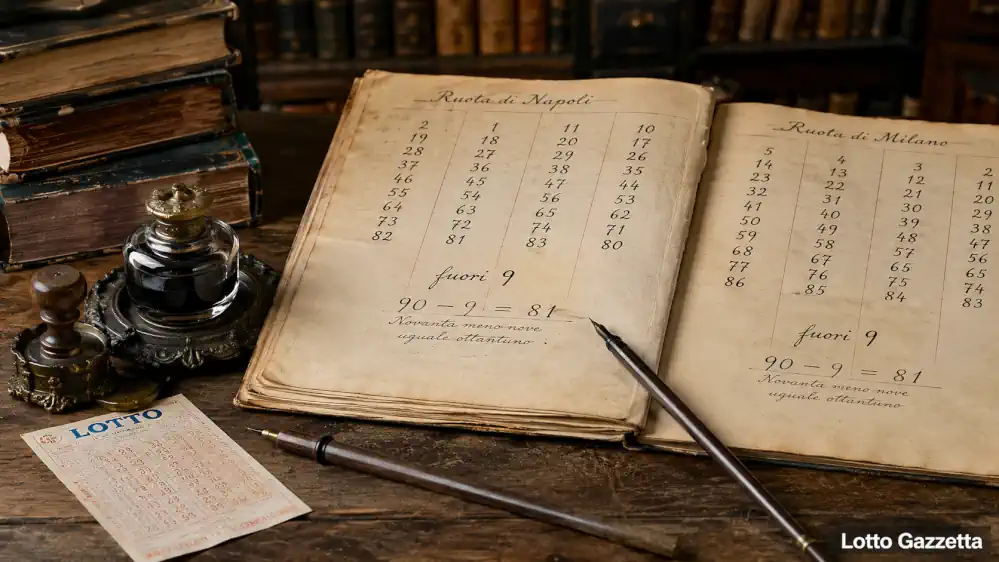 Ruota di Napoli
2 1 11 10
19 18 20 17
28 27 29 26
37 36 38 35
46 45 47 44
55 54 56 53
64 63 65 62
73 72 74 71
82 81 83 80
fuori 9
90 - 9 = 81
Novanta meno nove
uguale ottantuno.
Ruota di Milano
5 4 3 2
14 13 12 11
23 22 21 20
32 31 30 29
41 40 39 38
50 49 48 47
59 58 57 56
68 67 65 65
77 76 75 74
86 85 84 83
fuori 9
90 - 9 = 81
Novanta meno nove
uguale ottantuno
LOTTO
Lotto Gazzetta